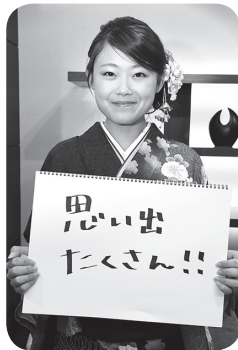 思い出
たくさん!!